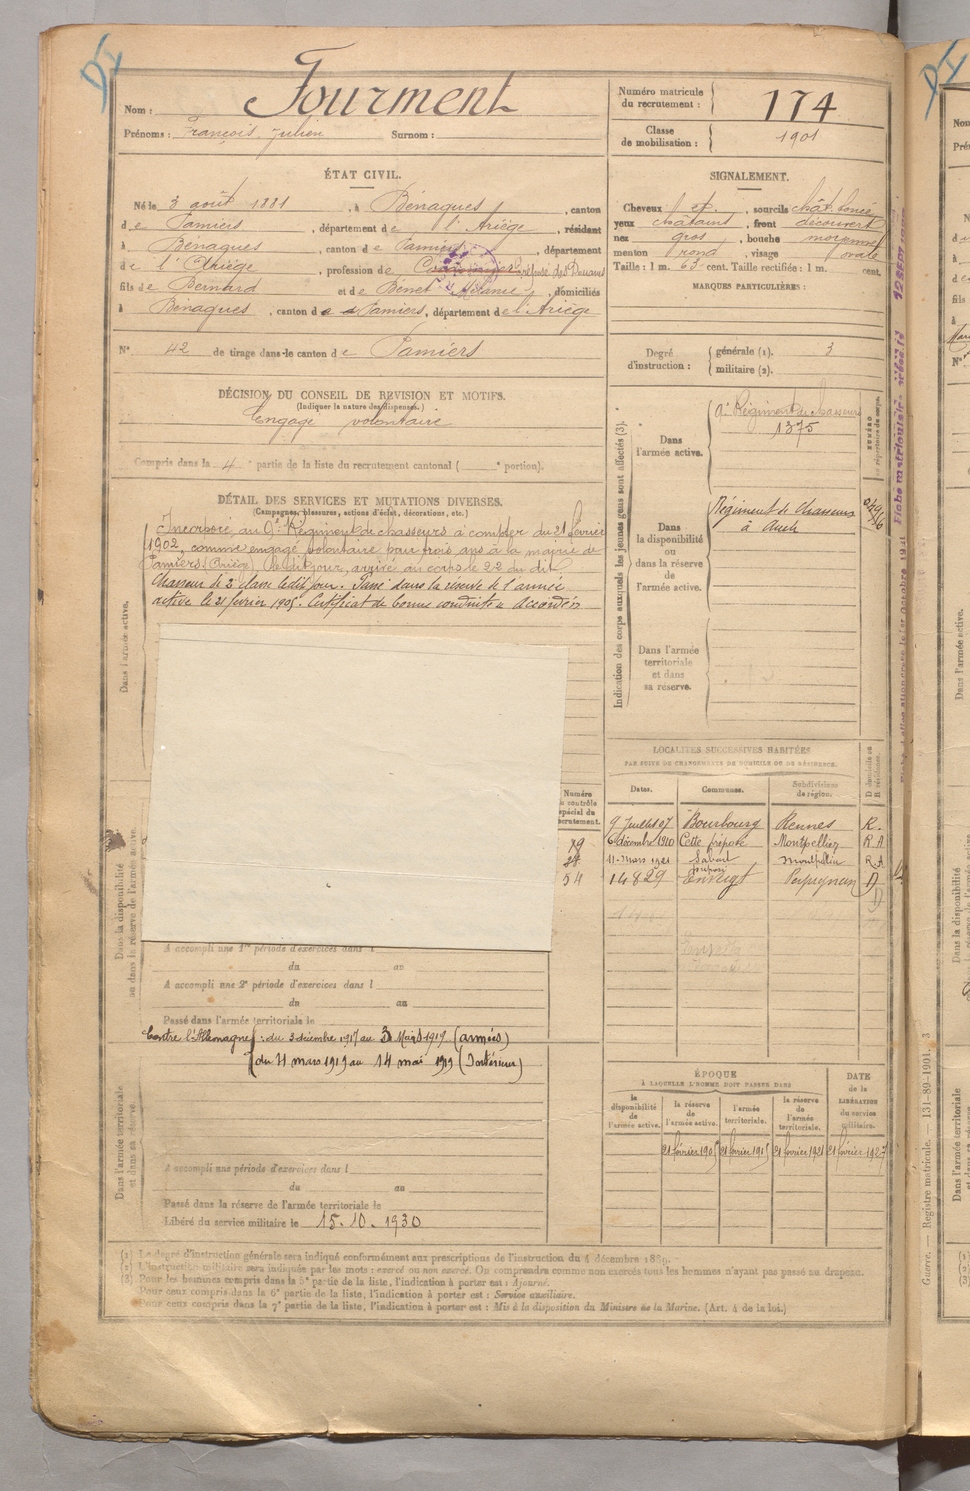 Nom : Fourment
Prénoms : François Julien Surnom :
Numéro matricule du recrutement : 174
Classe de mobilisation : 1901
ÉTAT CIVIL.
Né le 3 août 1881, à Bénagues, canton
de Pamiers, département de l'Ariège, résidant
à Bénagues, canton de Pamiers, département
de l'Ariège, profession de préposé des Douanes
fils de Bernard et de Benet Mélanie, domiciliés
à Bénagues, canton de Pamiers, département de l'Ariège
N° 42 de tirage dans le canton de Pamiers
SIGNALEMENT.
Cheveux, sourcils chât. foncé
yeux châtains, front découvert
nez gros, bouche moyenne
menton rond, visage ovale
Taille : 1 m. 63 cent. Taille rectifiée : 1 m. cent.
MARQUES PARTICULIÈRES :
Degré d'instruction : générale (1). 3
militaire (2).
DÉCISION DU CONSEIL DE REVISION ET MOTIFS.
(Indiquer la nature des dispenses.)
Engagé volontaire
Compris dans la 4e partie de la liste du recrutement cantonal ( e portion).
DÉTAIL DES SERVICES ET MUTATIONS DIVERSES.
(Campagnes, blessures, actions d'éclat, décorations, etc.)
Dans l'armée active.
Incorporé au 9e Régiment de chasseurs à compter du 21 février
1902, comme engagé volontaire pour trois ans à la mairie de
Pamiers (Ariège) le dit jour, arrivé au corps le 22 du dit
Chasseur de 2e classe le dit jour. Passé dans la réserve de l'armée
active le 21 février 1905. Certificat de bonne conduite "Accordé"
Indication des corps auxquels les jeunes gens sont affectés (3).
Dans l'armée active.
9e Régiment de chasseurs
1375
Dans la disponibilité ou dans la réserve de l'armée active.
Régiment de Chasseurs
à Auch
Dans l'armée territoriale et dans sa réserve.
LOCALITÉS SUCCESSIVES HABITÉES
PAR SUITE DE CHANGEMENTS DE DOMICILE OU DE RÉSIDENCE.
Dates. Communes. Subdivisions de région. D domicile ou R résidence.
9 Juillet 07 Bourbourg Rennes R.
6 décembre 1910 Cette préposé Montpellier R A
11 mars 1921 préposé Montpellier R.A
14 8 29 Enveigt Perpignan D
Numéro au contrôle spécial du recrutement.
54
Dans la disponibilité ou dans la réserve de l'armée active.
A accompli une 1re période d'exercices dans l
du au
A accompli une 2e période d'exercices dans l
du au
Passé dans l'armée territoriale le
Contre l'Allemagne : du 3 décembre 1917 au 3 Mars 1919 (armées)
du 11 mars 1919 au 14 mai 1919 (Intérieur)
Dans l'armée territoriale et dans sa réserve.
A accompli une période d'exercices dans l
du au
Passé dans la réserve de l'armée territoriale le
Libéré du service militaire le 15.10.1930
ÉPOQUE
À LAQUELLE L'HOMME DOIT PASSER DANS
la disponibilité de l'armée active. la réserve de l'armée active. l'armée territoriale. la réserve de l'armée territoriale. DATE de la LIBÉRATION du service militaire.
21 février 1905 21 février 1915 21 février 1921 21 février 1927
(1) Le degré d'instruction générale sera indiqué conformément aux prescriptions de l'instruction du 4 décembre 1889.
(2) L'instruction militaire sera indiquée par les mots : exercé ou non exercé. On comprendra comme non exercés tous les hommes n'ayant pas passé au drapeau.
(3) Pour les hommes compris dans la 5e partie de la liste, l'indication à porter est : Ajourné.
Pour ceux compris dans la 6e partie de la liste, l'indication à porter est : Service auxiliaire.
Pour ceux compris dans la 7e partie de la liste, l'indication à porter est : Mis à la disposition du Ministre de la Marine. (Art. 4 de la loi.)
Guerre. — Registre matricule. — 131-89-1901. 3